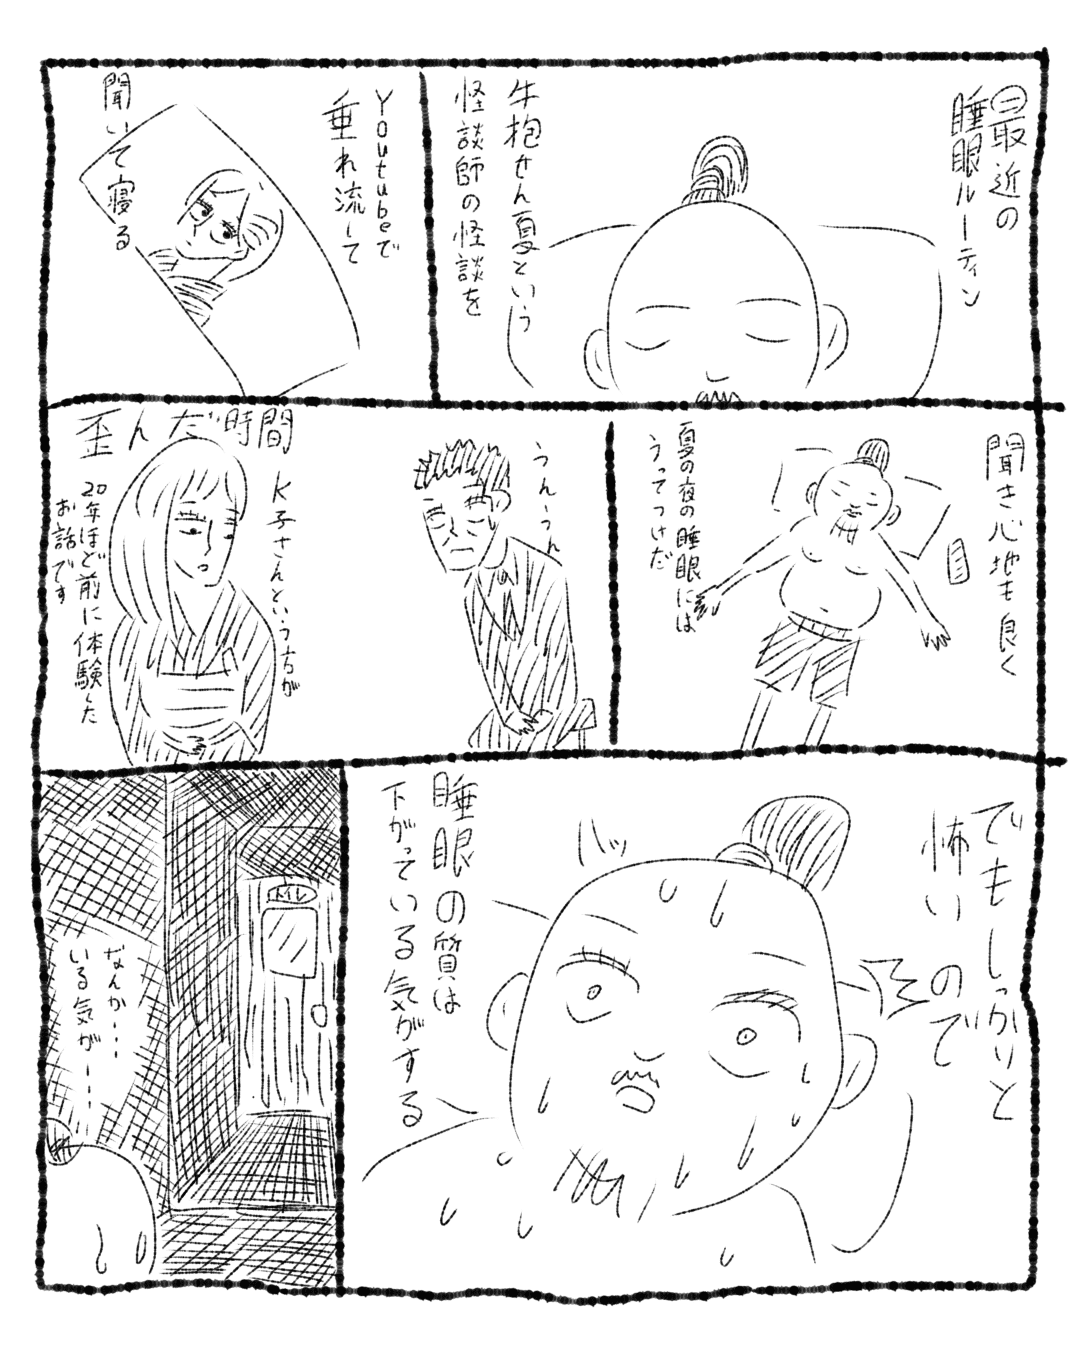 最近の
睡眠ルーティン
牛抱せん夏という
怪談師の怪談を
Youtubeで
垂れ流して
聞いて寝る
聞き心地も良く
夏の夜の睡眠には
うってつけだ
うんうん
歪んだ時間
K子さんという方が
20年ほど前に体験した
お話です
でもしっかりと
怖いので
バッ
睡眠の質は
下がっている気がする
トイレ
なんか・・・
いる気が・・・